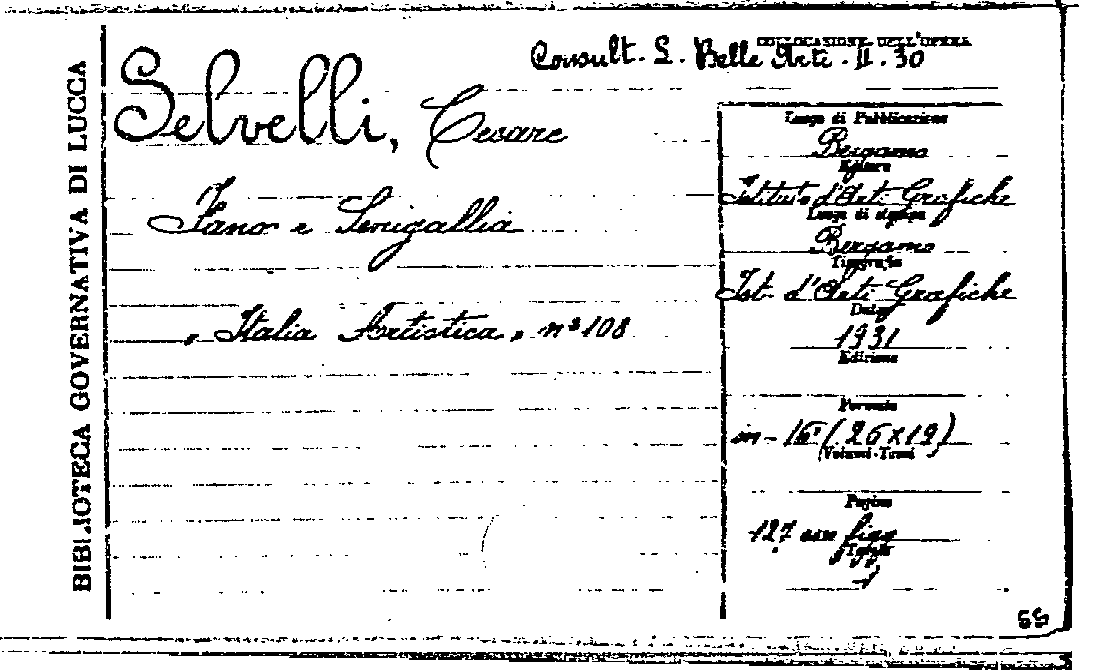 BIBLIOTECA GOVERNATIVA DI LUCCA
COLLOCAZIONE DELL'OPERA
Consult. S. Belle Arti. II. 30
Selvelli, Cesare
Fano e Senigallia
"Italia Artistica" n° 108
Luogo di Pubblicazione
Bergamo
Editore
Istituto d'Arti Grafiche
Luogo di stampa
Bergamo
Tipografia
Ist. d'Arti Grafiche
Data
1931
Edizione
Formato
in-16° (26x19)
Volumi-Tomi
Pagine
127 con figg
Tavole
1
55